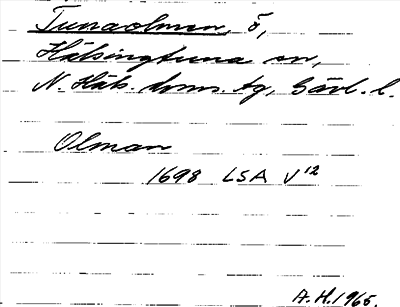 Tunaolman, ö,
Hälsingtuna sn,
N. Häls. doms. tg, Gävl. l.
Olman
1698 LSA V12
A.H. 1965.